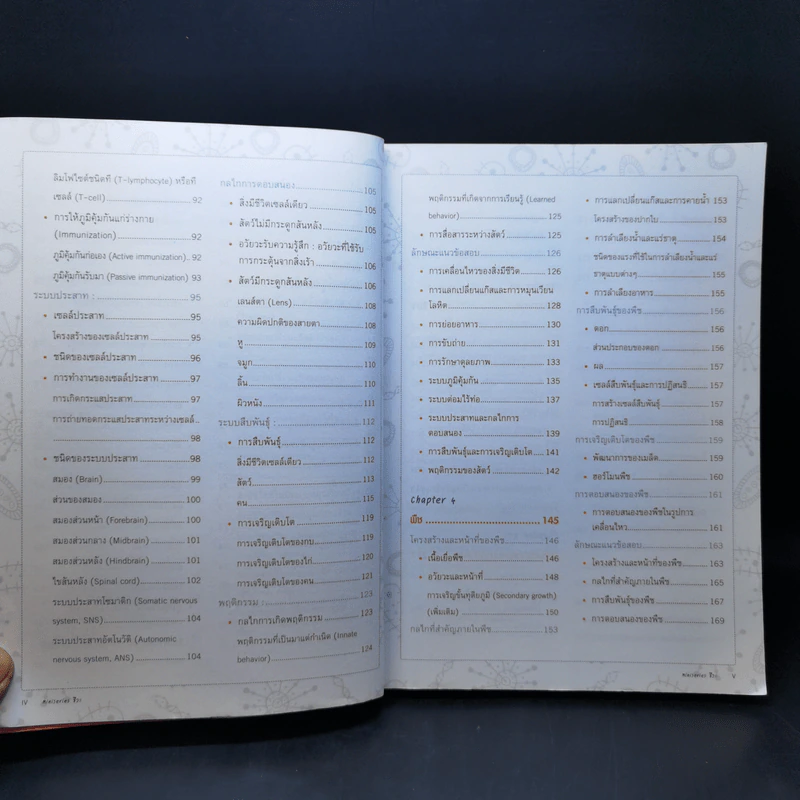 ลิมโฟไซต์ชนิดที (T-lymphocyte) หรือที
เซลล์ (T-cell) 92
• การให้ภูมิคุ้มกันแก่ร่างกาย
(Immunization) 92
ภูมิคุ้มกันก่อเอง (Active immunization). 92
ภูมิคุ้มกันรับมา (Passive immunization) 93
ระบบประสาท : 95
• เซลล์ประสาท 95
โครงสร้างของเซลล์ประสาท 95
• ชนิดของเซลล์ประสาท 96
• การทำงานของเซลล์ประสาท 97
การเกิดกระแสประสาท 97
การถ่ายทอดกระแสประสาทระหว่างเซลล์
98
• ชนิดของระบบประสาท 98
สมอง (Brain) 99
ส่วนของสมอง 100
สมองส่วนหน้า (Forebrain) 100
สมองส่วนกลาง (Midbrain) 101
สมองส่วนหลัง (Hindbrain) 101
ไขสันหลัง (Spinal cord) 102
ระบบประสาทโซมาติก (Somatic nervous
system, SNS) 104
ระบบประสาทอัตโนวัติ (Autonomic
nervous system, ANS) 104
กลไกการตอบสนอง 105
• สิ่งมีชีวิตเซลล์เดียว 105
• สัตว์ไม่มีกระดูกสันหลัง 105
• อวัยวะรับความรู้สึก : อวัยวะที่ใช้รับ
การกระตุ้นจากสิ่งเร้า 106
• สัตว์มีกระดูกสันหลัง 106
เลนส์ตา (Lens) 108
ความผิดปกติของสายตา 108
หู 109
จมูก 110
ลิ้น 110
ผิวหนัง 111
ระบบสืบพันธุ์ : 112
• การสืบพันธุ์ 112
สิ่งมีชีวิตเซลล์เดียว 112
สัตว์ 113
คน 115
• การเจริญเติบโต 119
การเจริญเติบโตของกบ 119
การเจริญเติบโตของไก่ 120
การเจริญเติบโตของคน 121
พฤติกรรม : 123
• กลไกการเกิดพฤติกรรม 123
พฤติกรรมที่เป็นมาแต่กำเนิด (Innate
behavior) 124
IV
พฤติกรรมที่เกิดจากการเรียนรู้ (Learned
behavior) 125
• การสื่อสารระหว่างสัตว์ 125
ลักษณะแนวข้อสอบ 126
• การเคลื่อนไหวของสิ่งมีชีวิต 126
• การแลกเปลี่ยนแก๊สและการหมุนเวียน
โลหิต 128
• การย่อยอาหาร 130
• การขับถ่าย 131
• การรักษาดุลยภาพ 133
• ระบบภูมิคุ้มกัน 135
• ระบบต่อมไร้ท่อ 137
• ระบบประสาทและกลไกการ
ตอบสนอง 139
• การสืบพันธุ์และการเจริญเติบโต 141
• พฤติกรรมของสัตว์ 142
Chapter 4
พืช 145
โครงสร้างและหน้าที่ของพืช 146
• เนื้อเยื่อพืช 146
• อวัยวะและหน้าที่ 148
การเจริญขั้นทุติยภูมิ (Secondary growth)
(เพิ่มเติม) 150
กลไกที่สำคัญภายในพืช 153
• การแลกเปลี่ยนแก๊สและการคายน้ำ 153
โครงสร้างของปากใบ 153
• การลำเลียงน้ำและแร่ธาตุ 154
ชนิดของแรงที่ใช้ในการลำเลียงน้ำและแร่
ธาตุแบบต่างๆ 155
• การลำเลียงอาหาร 155
การสืบพันธุ์ของพืช 156
• ดอก 156
ส่วนประกอบของดอก 156
• ผล 157
• เซลล์สืบพันธุ์และการปฏิสนธิ 157
การสร้างเซลล์สืบพันธุ์ 157
การปฏิสนธิ 158
การเจริญเติบโตของพืช 159
• พัฒนาการของเมล็ด 159
• ฮอร์โมนพืช 160
การตอบสนองของพืช 161
• การตอบสนองของพืชในรูปการ
เคลื่อนไหว 161
ลักษณะแนวข้อสอบ 163
• โครงสร้างและหน้าที่ของพืช 163
• กลไกที่สำคัญภายในพืช 165
• การสืบพันธุ์ของพืช 167
• การตอบสนองของพืช 169
V